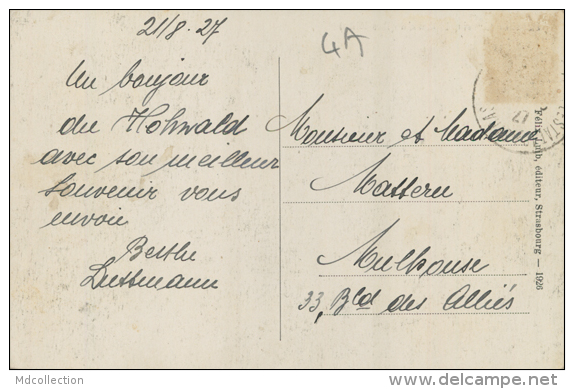 21/8.27
4A
Un bonjour
du Hohwald
avec son meilleur
souvenir vous
envoi
Berthe
Monsieur et Madame
Mattern
Mulhouse
33, Bld des Alliés
Félix Luib, éditeur, Strasbourg — 1926
Mdcollection
www.delcampe.net